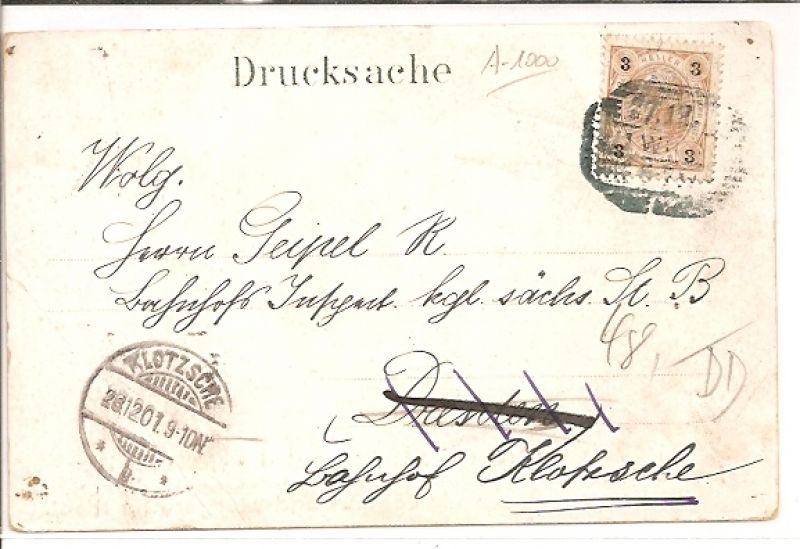 Drucksache
A-1000
3 HELLER 3
3 3
27.12.
Wolg.
Herrn Geipel R.
Bahnhofs Inspect. kgl. sächs. St. B
48,
DD
Dresden
Bahnhof Klotzsche
KLOTZSCHE
28 12 01. 9-10N.
* b. *